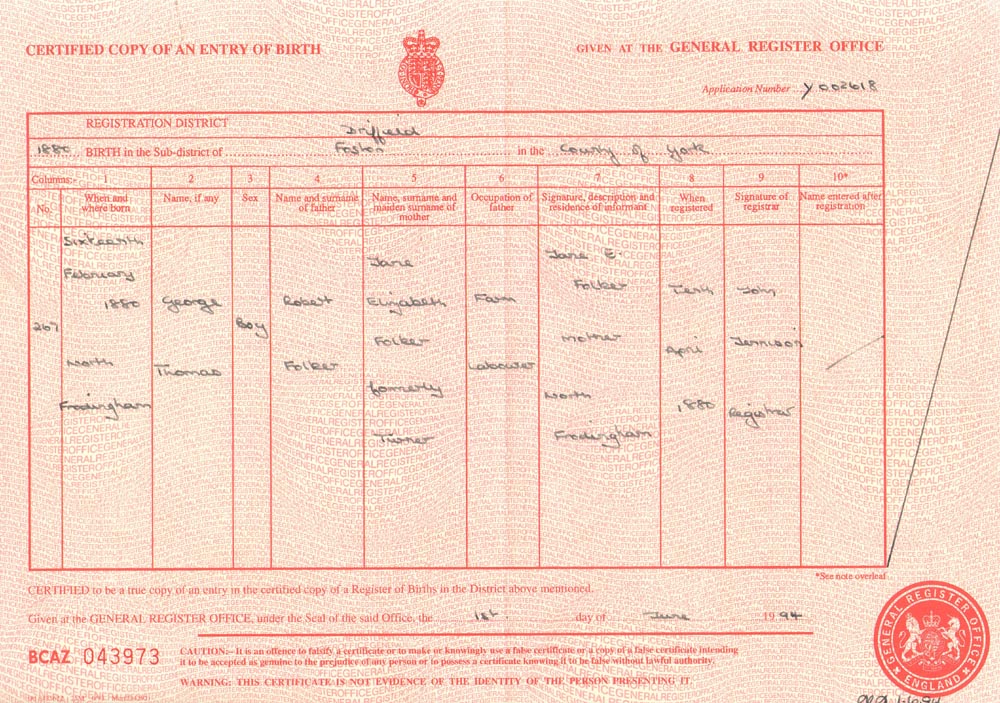 CERTIFIED COPY OF AN ENTRY OF BIRTH
GIVEN AT THE GENERAL REGISTER OFFICE
Application Number Y002618
REGISTRATION DISTRICT Driffield
1880 BIRTH in the Sub-district of Foston in the County of York
Columns:- 1 2 3 4 5 6 7 8 9 10*
No. When and where born Name, if any Sex Name and surname of father Name, surname and maiden surname of mother Occupation of father Signature, description and residence of informant When registered Signature of registrar Name entered after registration
267
Sixteenth
February
1880
North
Frodingham
George
Thomas
Boy
Robert
Folker
Jane
Elizabeth
Folker
formerly
Turner
Farm
Labourer
Jane E.
Folker
Mother
North
Frodingham
Tenth
April
1880
John
Jennison
Registrar
*See note overleaf
CERTIFIED to be a true copy of an entry in the certified copy of a Register of Births in the District above mentioned.
Given at the GENERAL REGISTER OFFICE, under the Seal of the said Office, the 1st. day of June 1994
BCAZ 043973
CAUTION:- It is an offence to falsify a certificate or to make or knowingly use a false certificate or a copy of a false certificate intending
it to be accepted as genuine to the prejudice of any person or to possess a certificate knowing it to be false without lawful authority.
WARNING: THIS CERTIFICATE IS NOT EVIDENCE OF THE IDENTITY OF THE PERSON PRESENTING IT.
GENERAL REGISTER OFFICE
ENGLAND